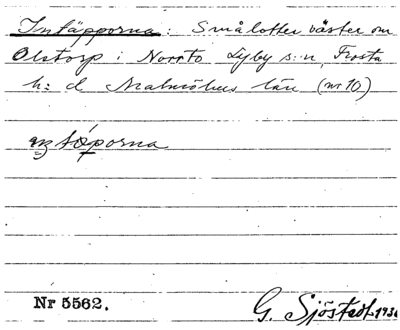 Intäpporna: Smålotter väster om
Olstorp i Norrto Lyby s:n, Frosta
h:d Malmöhus län (nr 10)
tǿporna
Nr 5562.
G. Sjöstedt. 1936